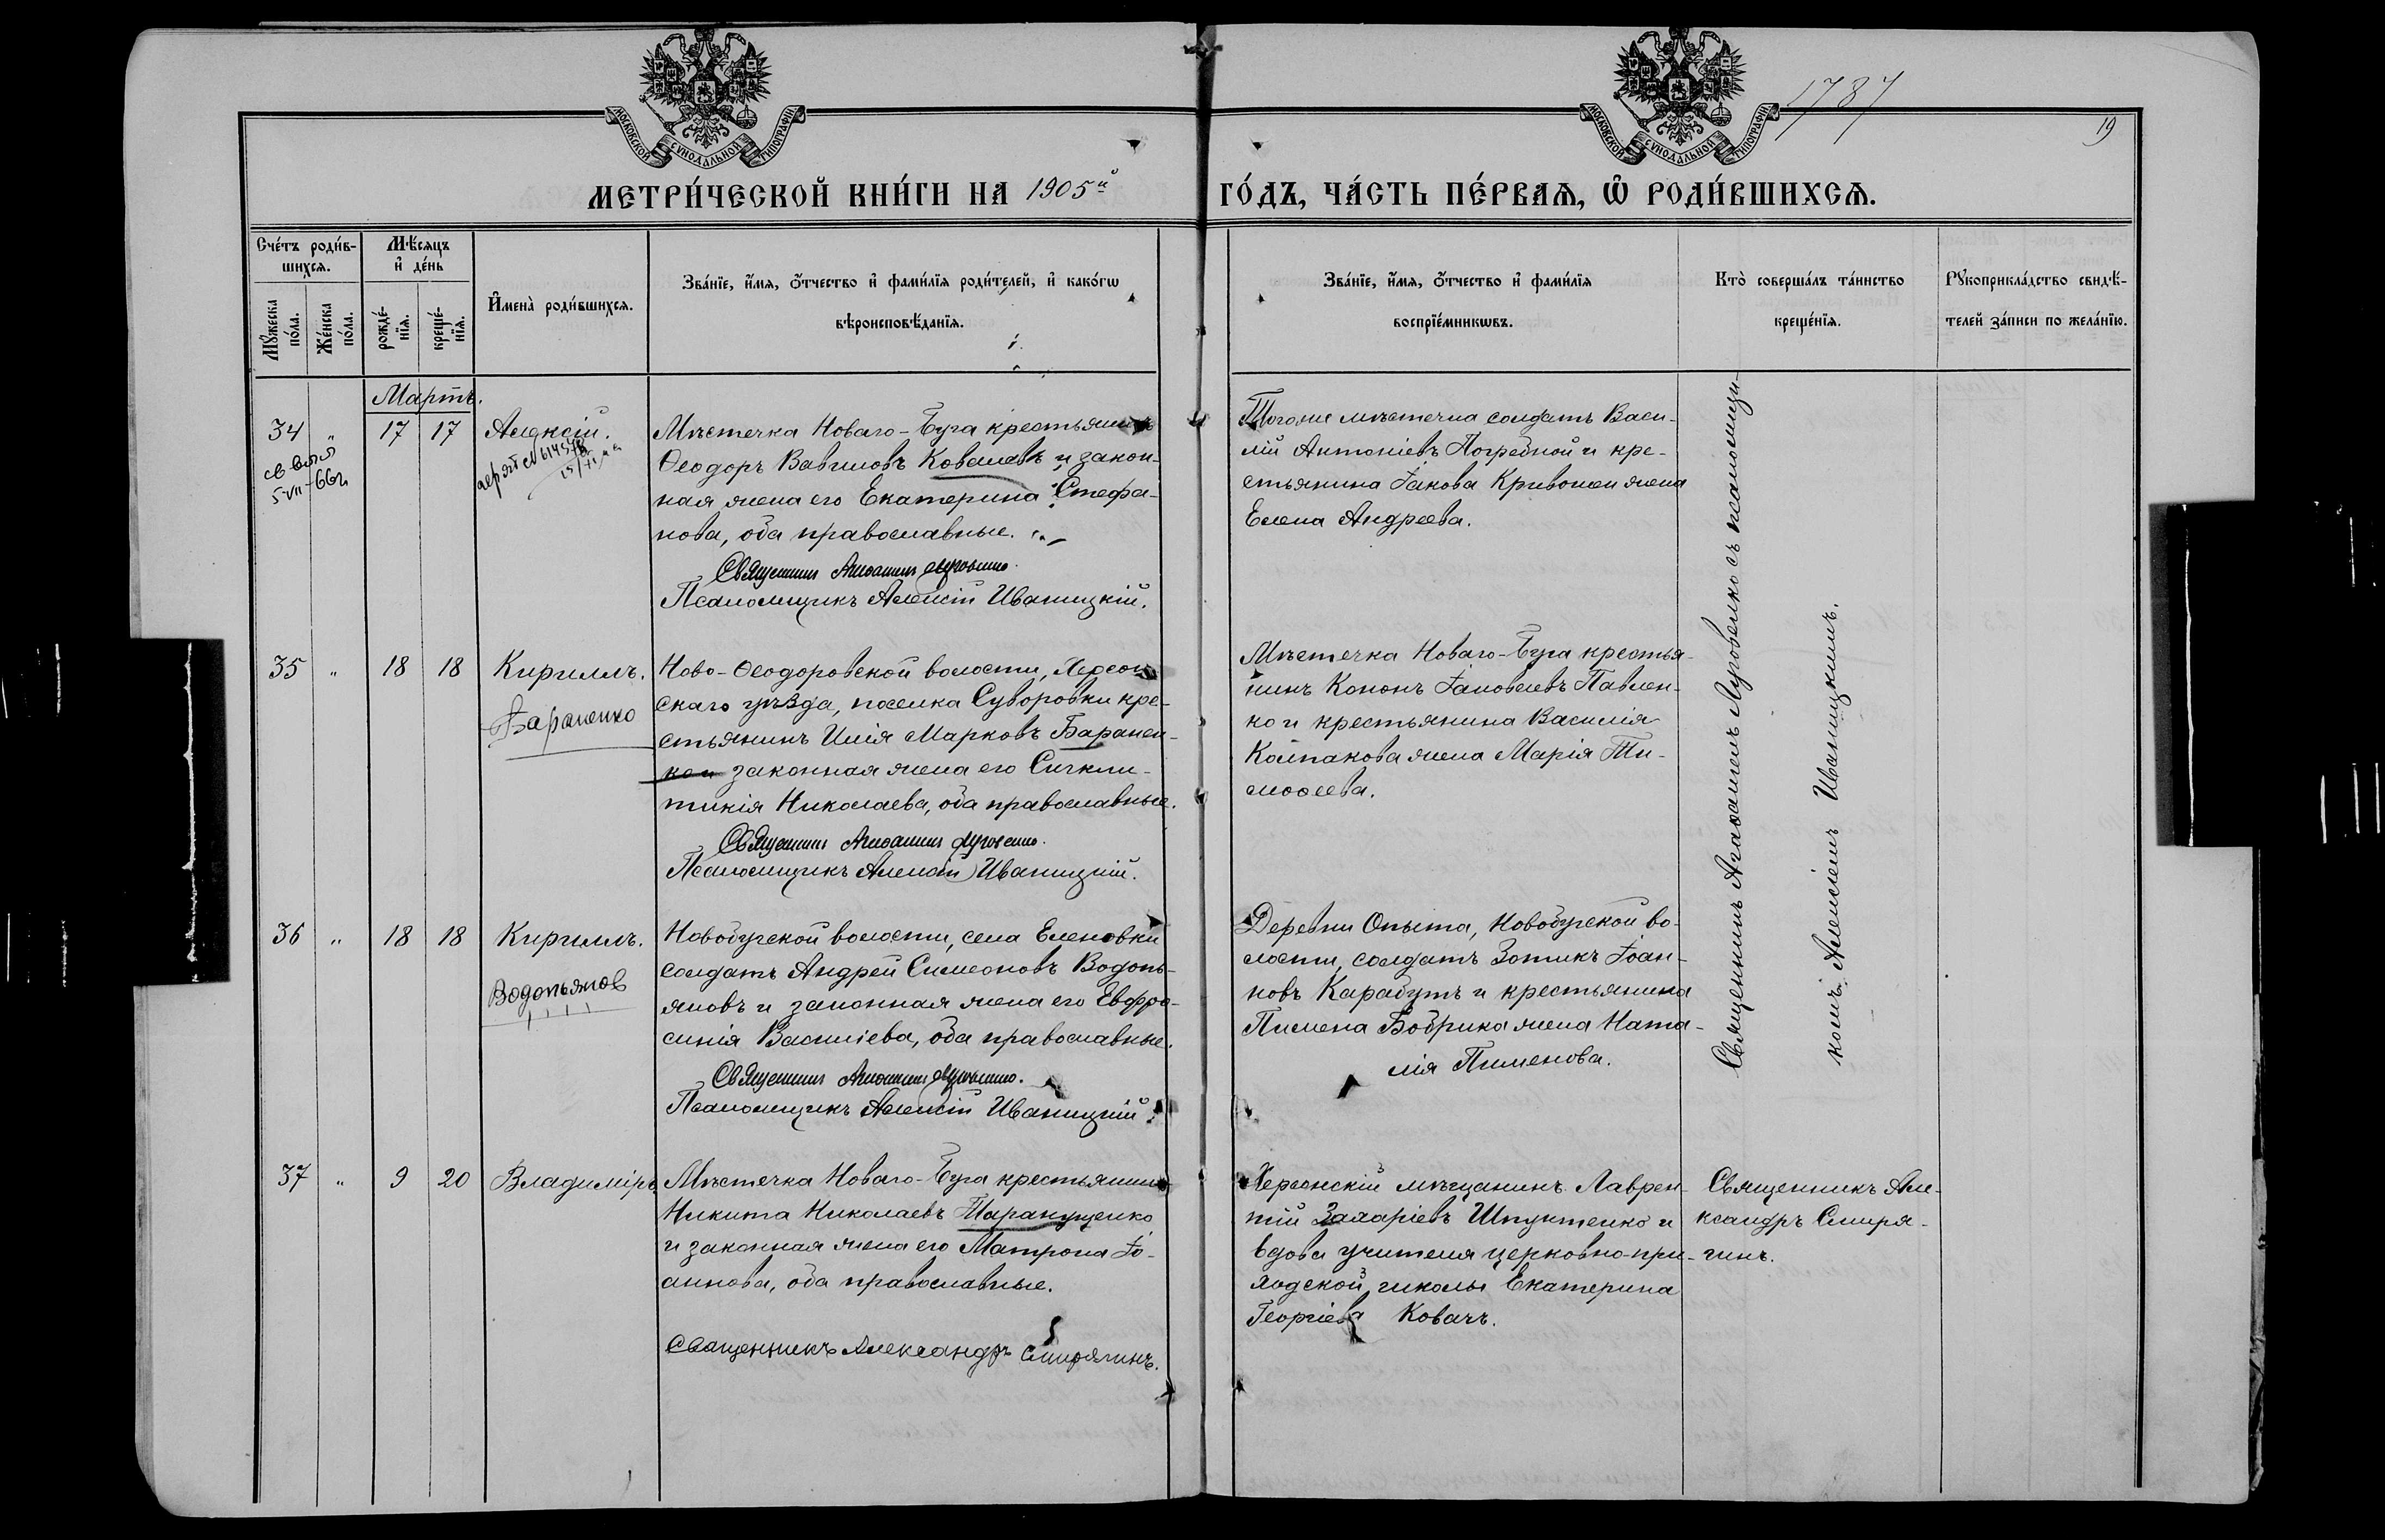 МОСКОВСКОЙ СѴНОДАЛЬНОЙ ТИПОГРАФІИ
МОСКОВСКОЙ СѴНОДАЛЬНОЙ ТИПОГРАФІИ
1787
19
МЕТРИ́ЧЕСКОЙ КНИ́ГИ НА 1905й ГО́ДЪ, ЧА́СТЬ ПЕ́РВАѦ, Ѡ҆ РОДИ́ВШИХСѦ.
Сче́тъ роди́в-
шихсѧ.
Мꙋ́жеска по́ла.
Же́нска по́ла.
Мѣ́сѧцъ
и҆ де́нь
рожде́-
нїѧ.
креще́-
нїѧ.
И҆мена̀ роди́вшихсѧ.
Зва́нїе, и҆́мѧ, ѻ҆́тчество и҆ фами́лїѧ роди́телей, и҆ како́гѡ
вѣроисповѣ́данїѧ.
Зва́нїе, и҆́мѧ, ѻ҆́тчество и҆ фами́лїѧ
воспрїе́мникѡвъ.
Кто̀ соверша́лъ та́инство
креще́нїѧ.
Рꙋкоприкла́дство свидѣ́-
телей за́писи по жела́нїю.
Мартъ.
34 " 17 17 Алексій.
св-во
5-VII-66г
Мѣстечка Новаго-Буга крестьянинъ
Ѳеодоръ Вавиловъ Ковалевъ и закон-
ная жена его Екатерина Стефа-
нова, оба православные.
Священникъ Агаѳангелъ Луговенко.
Псаломщикъ Алексій Иваницкій.
Тогоже мѣстечка солдатъ Васи-
лій Антоніевъ Погребной и кре-
стьянина Іакова Кривошеи жена
Елена Андреева.
Священникъ Агаѳангелъ Луговенко съ псаломщи-
комъ Алексіемъ Иваницкимъ.
35 " 18 18 Кириллъ.
Бараненко
Ново-Ѳеодоровской волости, Херсон-
скаго уѣзда, поселка Суворовки кре-
стьянинъ Илія Марковъ Баранен-
ко и законная жена его Синкли-
тикія Николаева, оба православные.
Священникъ Агаѳангелъ Луговенко.
Псаломщикъ Алексій Иваницкій.
Мѣстечка Новаго-Буга крестья-
нинъ Кононъ Іаковлевъ Павлен-
ко и крестьянина Василія
Колпакова жена Марія Ти-
моѳеева.
36 " 18 18 Кириллъ.
Водопьянов
Новобугской волости, села Еленовки
солдатъ Андрей Симеоновъ Водопь-
яновъ и законная жена его Евфро-
синія Василіева, оба православные.
Священникъ Агаѳангелъ Луговенко.
Псаломщикъ Алексій Иваницкій.
Деревни Опыта, Новобугской во-
лости, солдатъ Зотикъ Іоан-
новъ Карабутъ и крестьянина
Пимена Бобрика жена Ната-
лія Пименова.
37 " 9 20 Владиміръ.
Мѣстечка Новаго-Буга крестьянинъ
Никита Николаевъ Таранущенко
и законная жена его Матрона Іо-
аннова, оба православные.
Священникъ Александръ Смирягинъ.
Херсонскій мѣщанинъ Лаврен-
тій Захаріевъ Шпунтенко и
вдова учителя церковно-при-
ходской школы Екатерина
Георгіева Ковачъ.
Священникъ Але-
ксандръ Смиря-
гинъ.